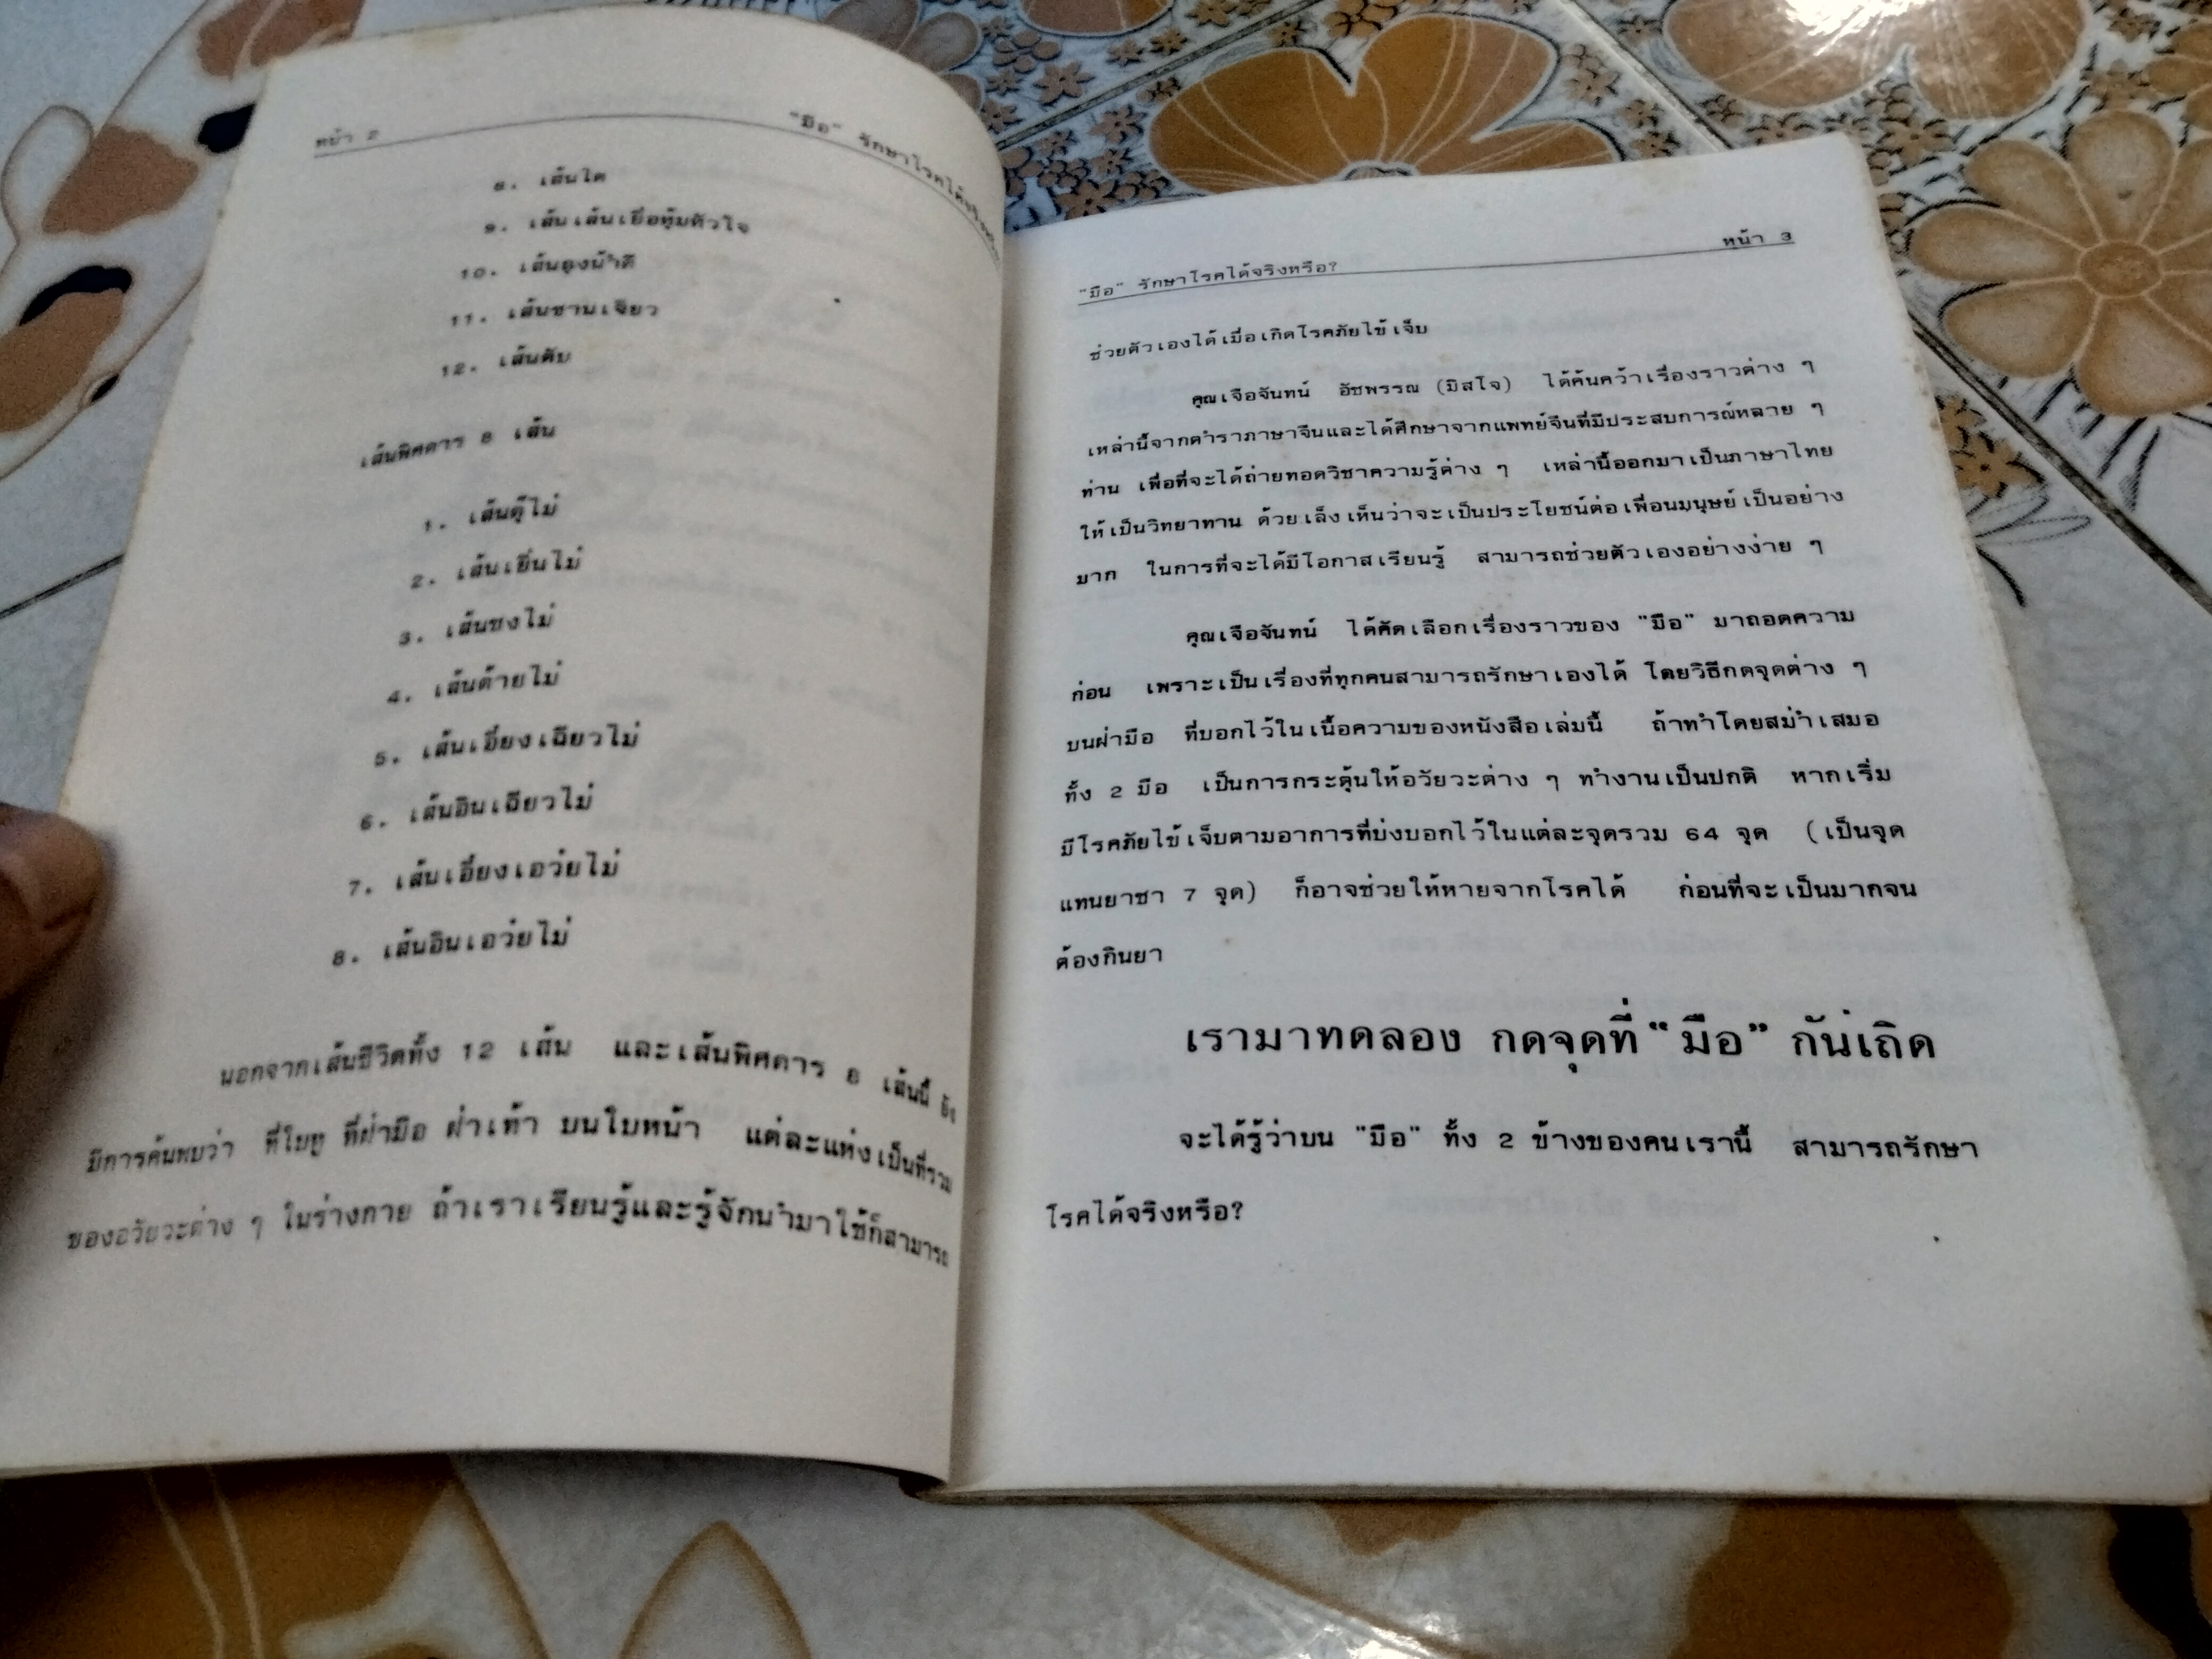 หน้า 2 "มือ" รักษาโรคได้จริงหรือ?
8. เส้นไต
9. เส้นเส้นเยื่อหุ้มหัวใจ
10. เส้นถุงน้ำดี
11. เส้นซานเจียว
12. เส้นตับ
เส้นพิศดาร 8 เส้น
1. เส้นตู๊ไม่
2. เส้นเยิ่นไม่
3. เส้นชงไม่
4. เส้นต้ายไม่
5. เส้นเอี๊ยงเฉียวไม่
6. เส้นอินเฉียวไม่
7. เส้นเอี๊ยงเอว๋ยไม่
8. เส้นอินเอว๋ยไม่
นอกจากเส้นชีวิตทั้ง 12 เส้น และเส้นพิศดาร 8 เส้นนี้ ยัง
มีการค้นพบว่า ที่ใบหู ที่ฝ่ามือ ฝ่าเท้า บนใบหน้า แต่ละแห่งเป็นที่รวม
ของอวัยวะต่าง ๆ ในร่างกาย ถ้าเราเรียนรู้และรู้จักนำมาใช้ก็สามารถ
"มือ" รักษาโรคได้จริงหรือ? หน้า 3
ช่วยตัวเองได้เมื่อเกิดโรคภัยไข้เจ็บ
คุณเจือจันทน์ อัชพรรณ (มิสโจ) ได้ค้นคว้าเรื่องราวต่าง ๆ
เหล่านี้จากตำราภาษาจีนและได้ศึกษาจากแพทย์จีนที่มีประสบการณ์หลาย ๆ
ท่าน เพื่อที่จะได้ถ่ายทอดวิชาความรู้ต่าง ๆ เหล่านี้ออกมาเป็นภาษาไทย
ให้เป็นวิทยาทาน ด้วยเล็งเห็นว่าจะเป็นประโยชน์ต่อเพื่อนมนุษย์เป็นอย่าง
มาก ในการที่จะได้มีโอกาสเรียนรู้ สามารถช่วยตัวเองอย่างง่าย ๆ
คุณเจือจันทน์ ได้คัดเลือกเรื่องราวของ "มือ" มาถอดความ
ก่อน เพราะเป็นเรื่องที่ทุกคนสามารถรักษาเองได้ โดยวิธีกดจุดต่าง ๆ
บนฝ่ามือ ที่บอกไว้ในเนื้อความของหนังสือเล่มนี้ ถ้าทำโดยสม่ำเสมอ
ทั้ง 2 มือ เป็นการกระตุ้นให้อวัยวะต่าง ๆ ทำงานเป็นปกติ หากเริ่ม
มีโรคภัยไข้เจ็บตามอาการที่บ่งบอกไว้ในแต่ละจุดรวม 64 จุด (เป็นจุด
แทนยาชา 7 จุด) ก็อาจช่วยให้หายจากโรคได้ ก่อนที่จะเป็นมากจน
ต้องกินยา
เรามาทดลอง กดจุดที่ "มือ" กันเถิด
จะได้รู้ว่าบน "มือ" ทั้ง 2 ข้างของคนเรานี้ สามารถรักษา
โรคได้จริงหรือ?